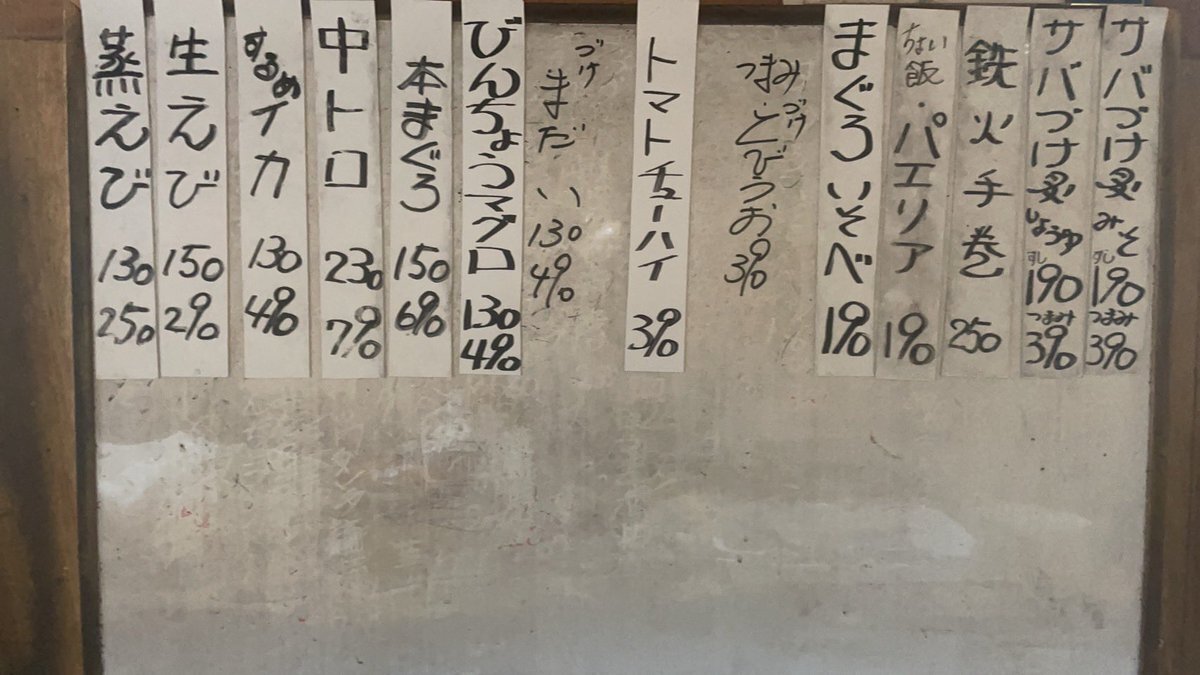 サバづけ炙みそ すし 190 つまみ 390
サバづけ炙しょうゆ すし 190 つまみ 390
鉄火手巻 250
ちょい飯・パエリア 190
まぐろいそべ 190
つまみ づけとびうお 390
トマトチューハイ 390
づけまだい 130 490
びんちょうマグロ 130 490
本まぐろ 150 690
中トロ 230 790
するめイカ 130 490
生えび 150 290
蒸えび 130 250